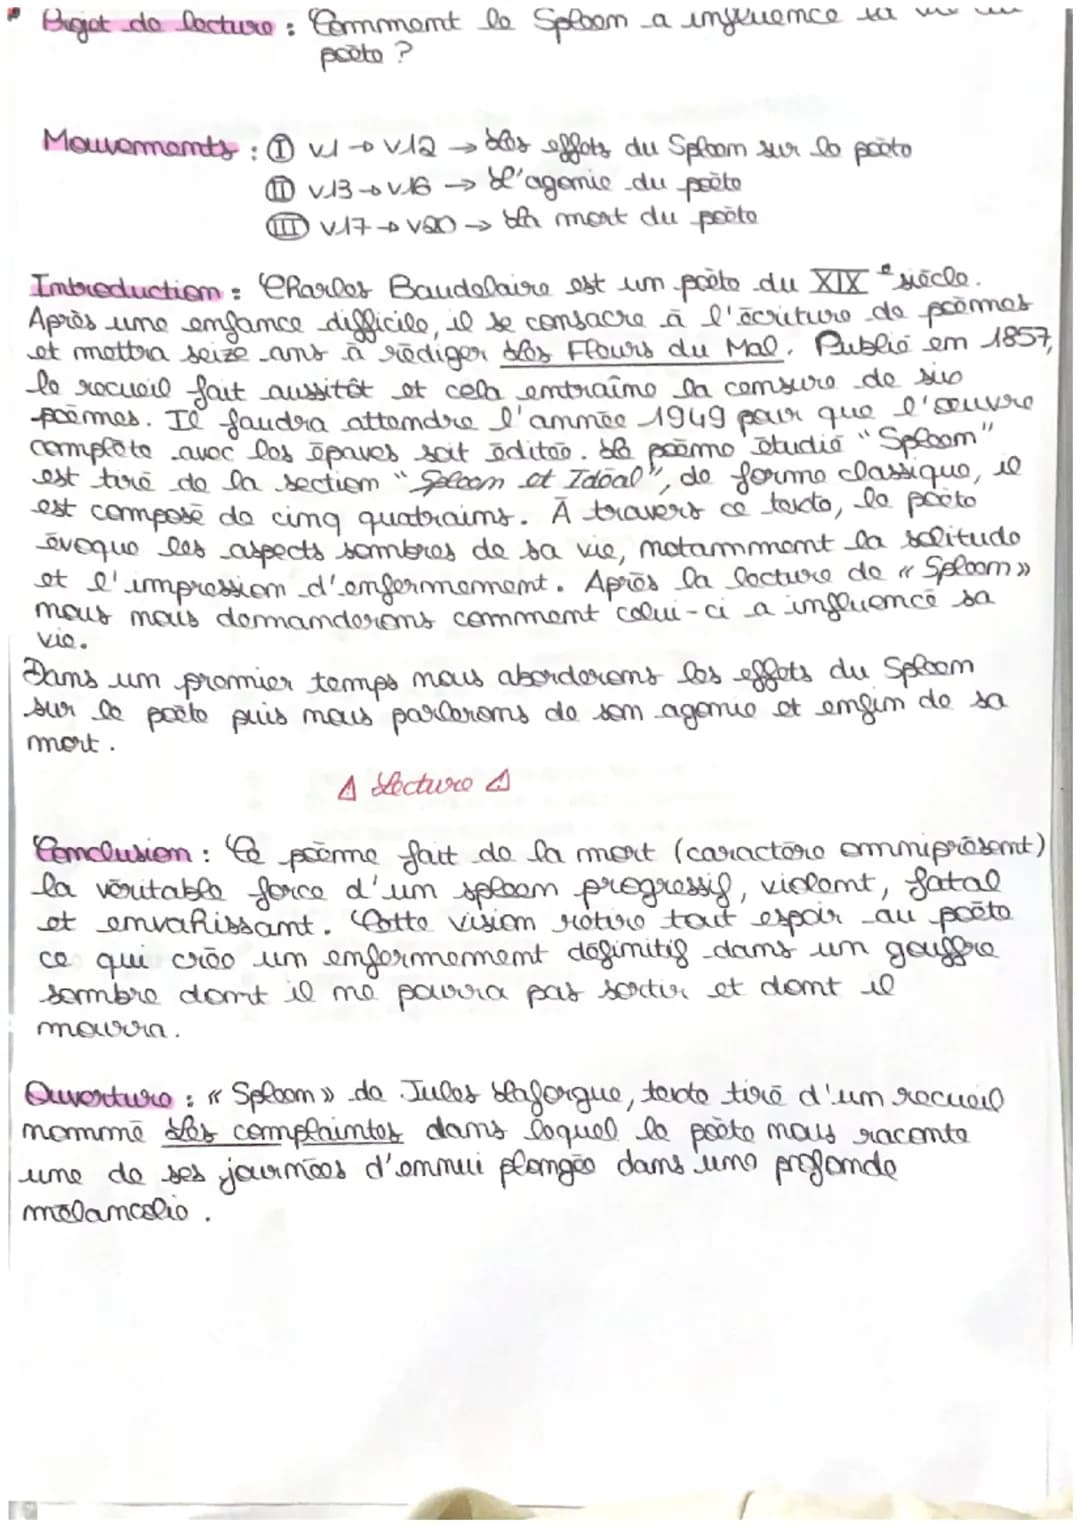 Projet de lecture : Comment le Spleen a influencé la vie du
poète ?
Mouvements : I v1 → v12 → Les effets du Spleen sur le poète
II v13 → v16 → L'agonie du poète
III v17 → v20 → La mort du poète
Introduction : Charles Baudelaire est un poète du XIXe siècle.
Après une enfance difficile, il se consacre à l'écriture de poèmes
et mettra seize ans à rédiger Les Fleurs du Mal. Publié en 1857,
le recueil fait aussitôt et cela entraîne la censure de six
poèmes. Il faudra attendre l'année 1949 pour que l'œuvre
complète avec les épaves soit éditée. Le poème étudié "Spleen"
est tiré de la section "Spleen et Idéal", de forme classique, il
est composé de cinq quatrains. À travers ce texte, le poète
évoque les aspects sombres de sa vie, notamment la solitude
et l'impression d'enfermement. Après la lecture de « Spleen »
nous nous demanderons comment celui-ci a influencé sa
vie.
Dans un premier temps nous aborderons les effets du Spleen
sur le poète puis nous parlerons de son agonie et enfin de sa
mort.
⚠ Lecture ⚠
Conclusion : Ce poème fait de la mort (caractère omniprésent)
la véritable force d'un spleen progressif, violent, fatal
et envahissant. Cette vision retire tout espoir au poète
ce qui crée un enfermement définitif dans un gouffre
sombre dont il ne pourra pas sortir et dont il
mourra.
Ouverture : « Spleen » de Jules Laforgue, texte tiré d'un recueil
nommé Les complaintes dans lequel le poète nous raconte
une de ses journées d'ennui plongée dans une profonde
mélancolie.